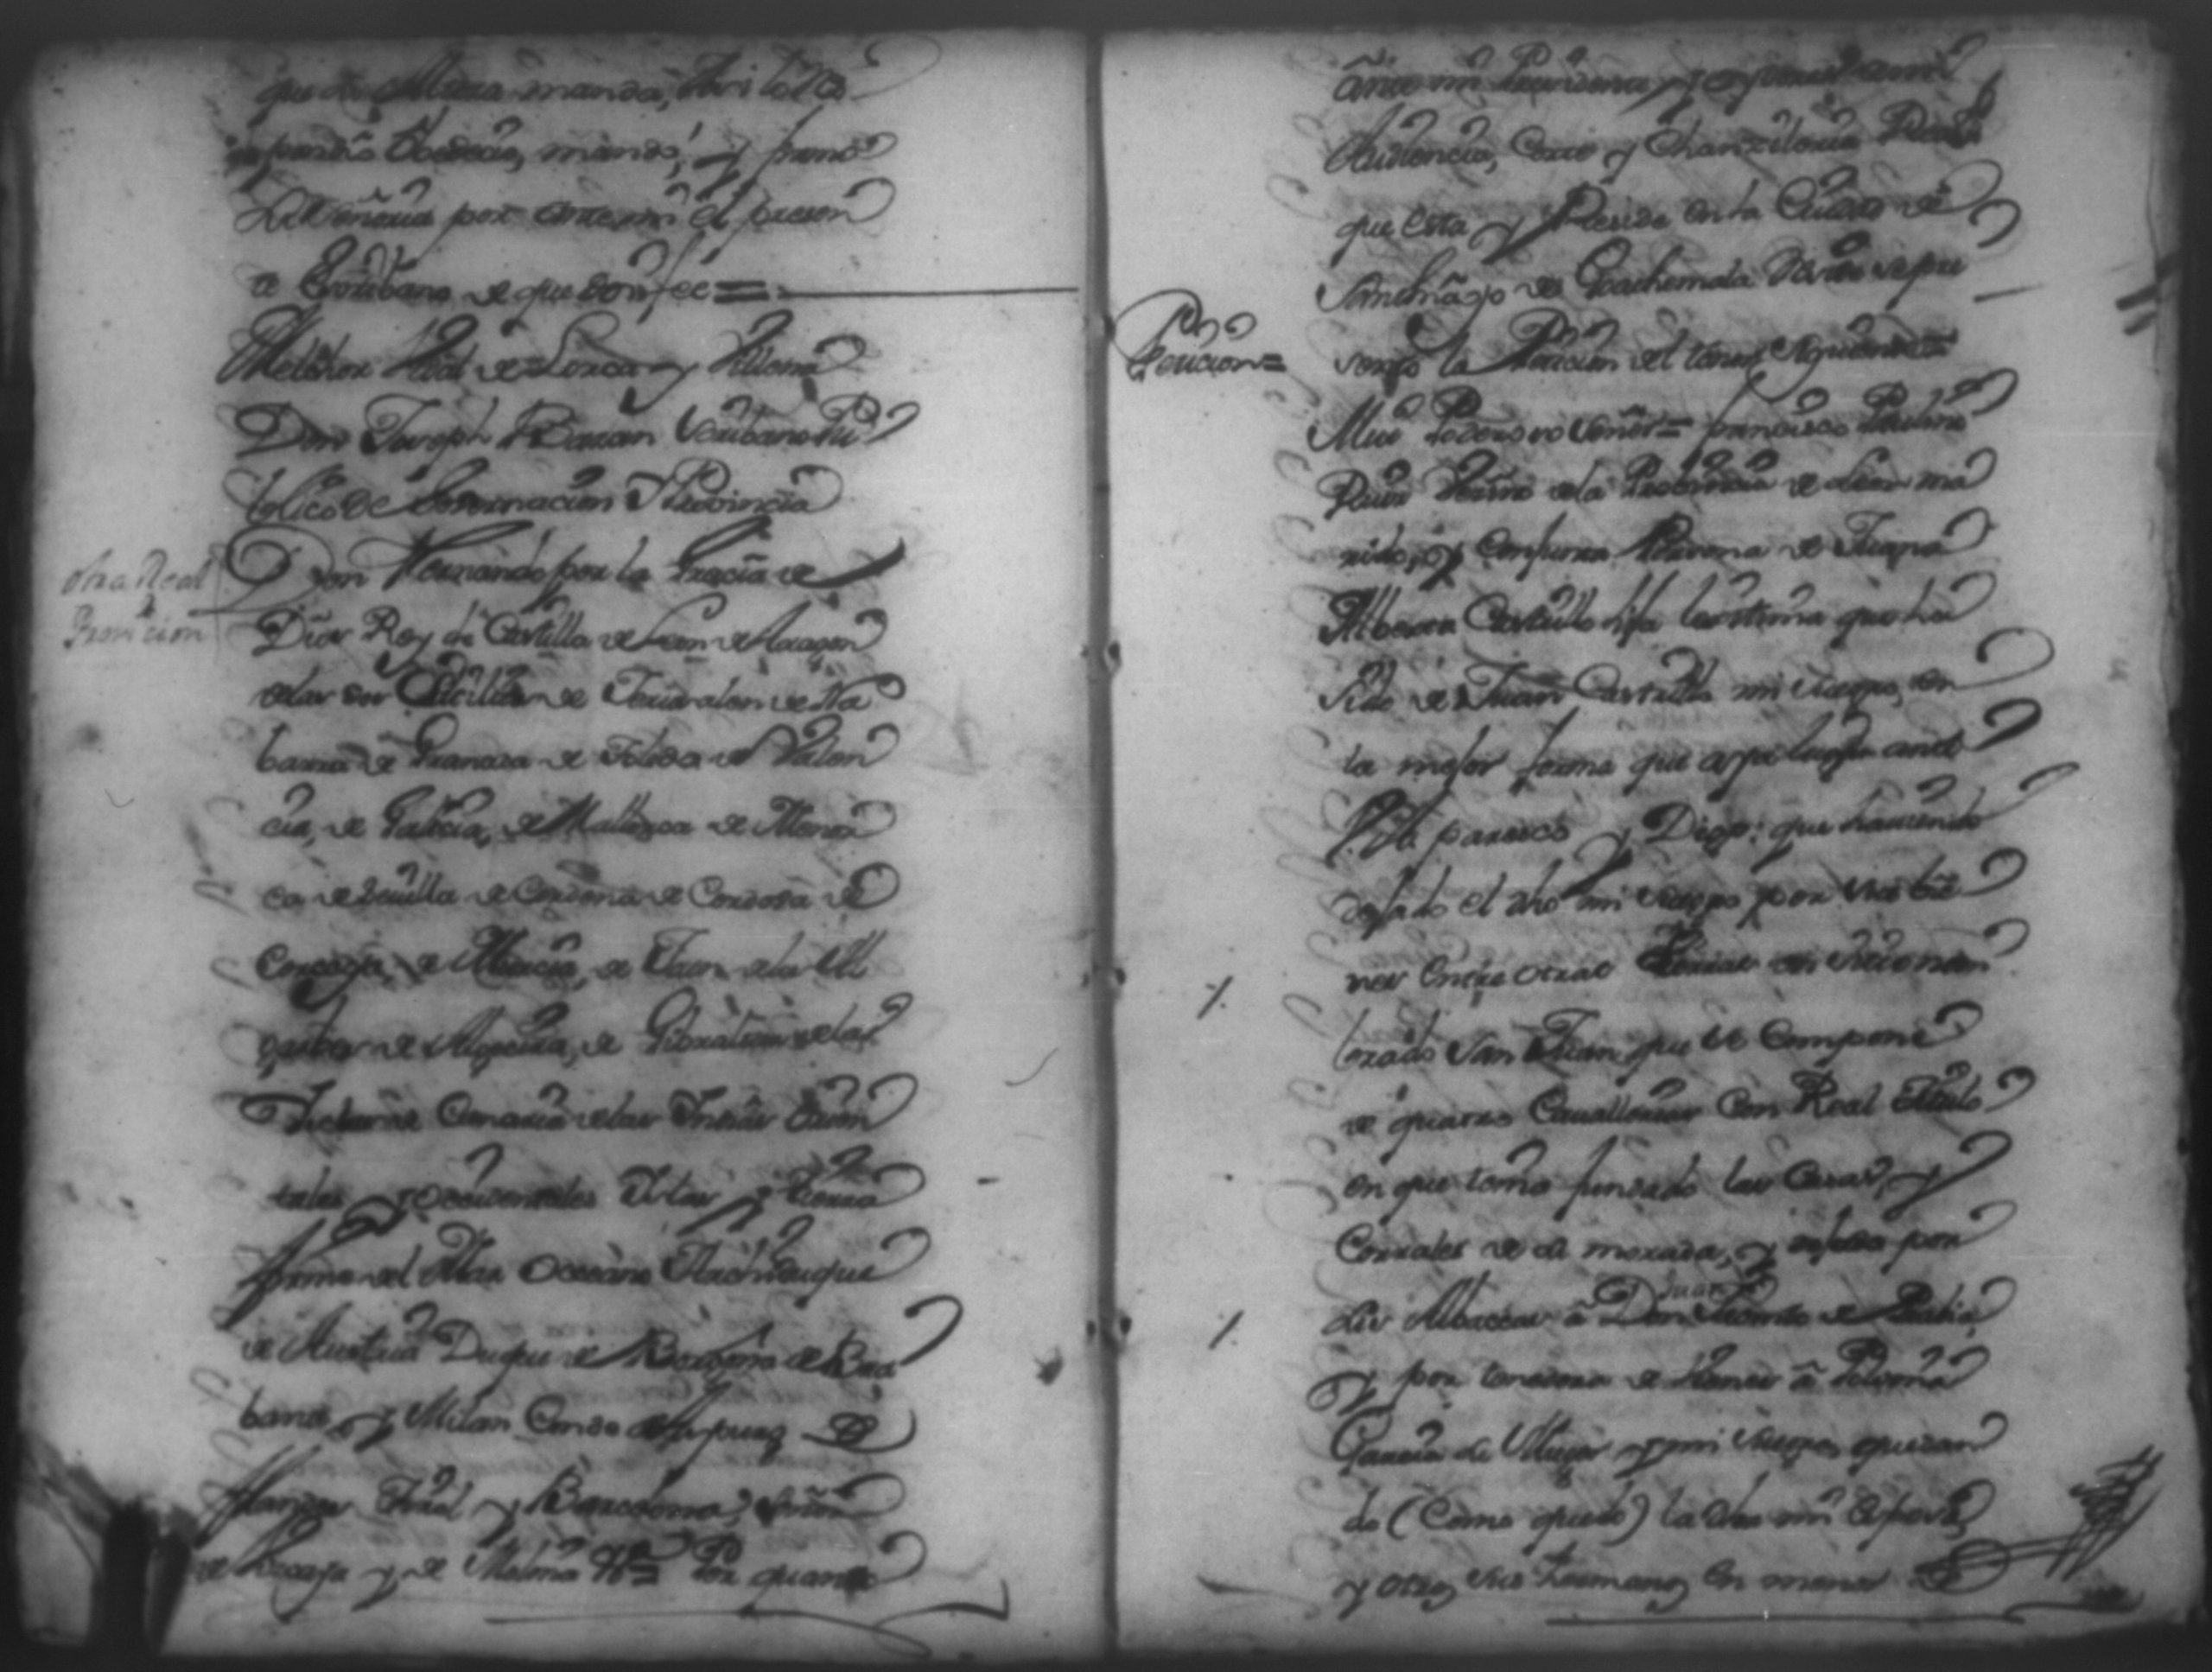 que se manda, Asi lo
obedecio, mandó, y firmó
Su Señoria por ante mi el presen
te Escribano de que doy fee =
Melchor Vidal de Lorca y Villena
Don Joseph Bazan Escribano Pu
blico de Governacion y Provincia
otra Real
Provicion
Don Fernando por la Gracia de
Dios Rey de Castilla de Leon de Aragon
de las dos Cicilias de Jerusalen de Na
barra de Granada de Toledo de Valen
cia, de Galicia, de Mallorca de Menor
ca de Sevilla de Cerdeña de Cordova de
Corcega, de Murcia, de Jaen de los Al
garbes de Algecira, de Gibraltar de las
Yslas de Canaria de las Indias Orien
tales y Occidentales Islas y Tierra
firme del Mar Occeano Archiduque
de Austria Duque de Borgoña de Bra
bante y Milan Conde de Aspurg de
Flandes Tirol y Barcelona, Señor
de Viscaya y de Molina &a = Por quanto
ante mi Presidente y Oydores de mi
Audiencia, Corte y Chanzileria Real
que esta y Reside en la Ciudad de
Santhiago de Goathemala se pre
Peticion =
sentó la Peticion del tenor siguiente
Mui Poderoso Señor = Francisco
Vezino de la Provincia de Leon ma
rido, y conjunta Persona de Juana
Castillo hija lexitima que ha
sido de Juan Castillo mi suegro, en
la mejor forma que aya lugar ante
V.A. paresco y Digo: que haviendo
dejado el dho mi suegro por sus bie
nes entre otras tierras un sitio nom
brado San Juan que se compone
de quatro Cavallerias Con Real titulo
en que tenia fundado las Casas, y
Corrales de su morada, y dejado por
Sus Albaceas á Don Juan de
y por tenedora de bienes á
Garcia su Muger y mi suegra, quedan
do (como quedó) la dha mi esposa
y otros sus hermanos en menor